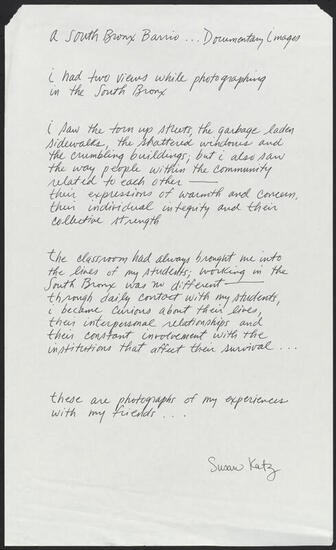 a South Bronx Barrio... Documentary images
i had two views while photographing
in the South Bronx
i saw the torn up streets, the garbage laden
sidewalks, the shattered windows and
the crumbling buildings; but i also saw
the way people within the community
related to each other —
their expressions of warmth and concern,
their individual integrity and their
collective strength
the classroom had always brought me into
the lives of my students; working in the
South Bronx was no different —
through daily contact with my students,
i became curious about their lives,
their interpersonal relationships and
their constant involvement with the
institutions that affect their survival...
these are photographs of my experiences
with my friends...
Susan Katz